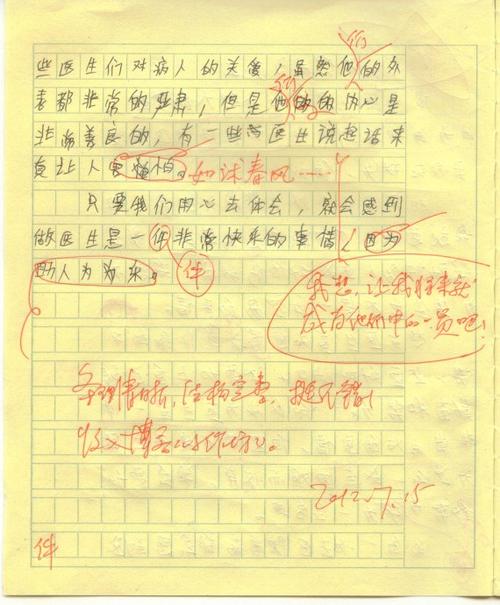 些医生们对病人的关爱，虽然他们的外
表都非常的严肃，但是他们的内心是
非常善良的，有一些医生说起话来
真让人
如沐春风……
只要我们用心去体会，就会感到
做医生是一件非常快乐的事情，因为
助人为为乐。
件
我想，让我将来就
成为他们中的一员吧！
条理清晰，结构完整，挺不错！
收入博客
2012.7.15
件